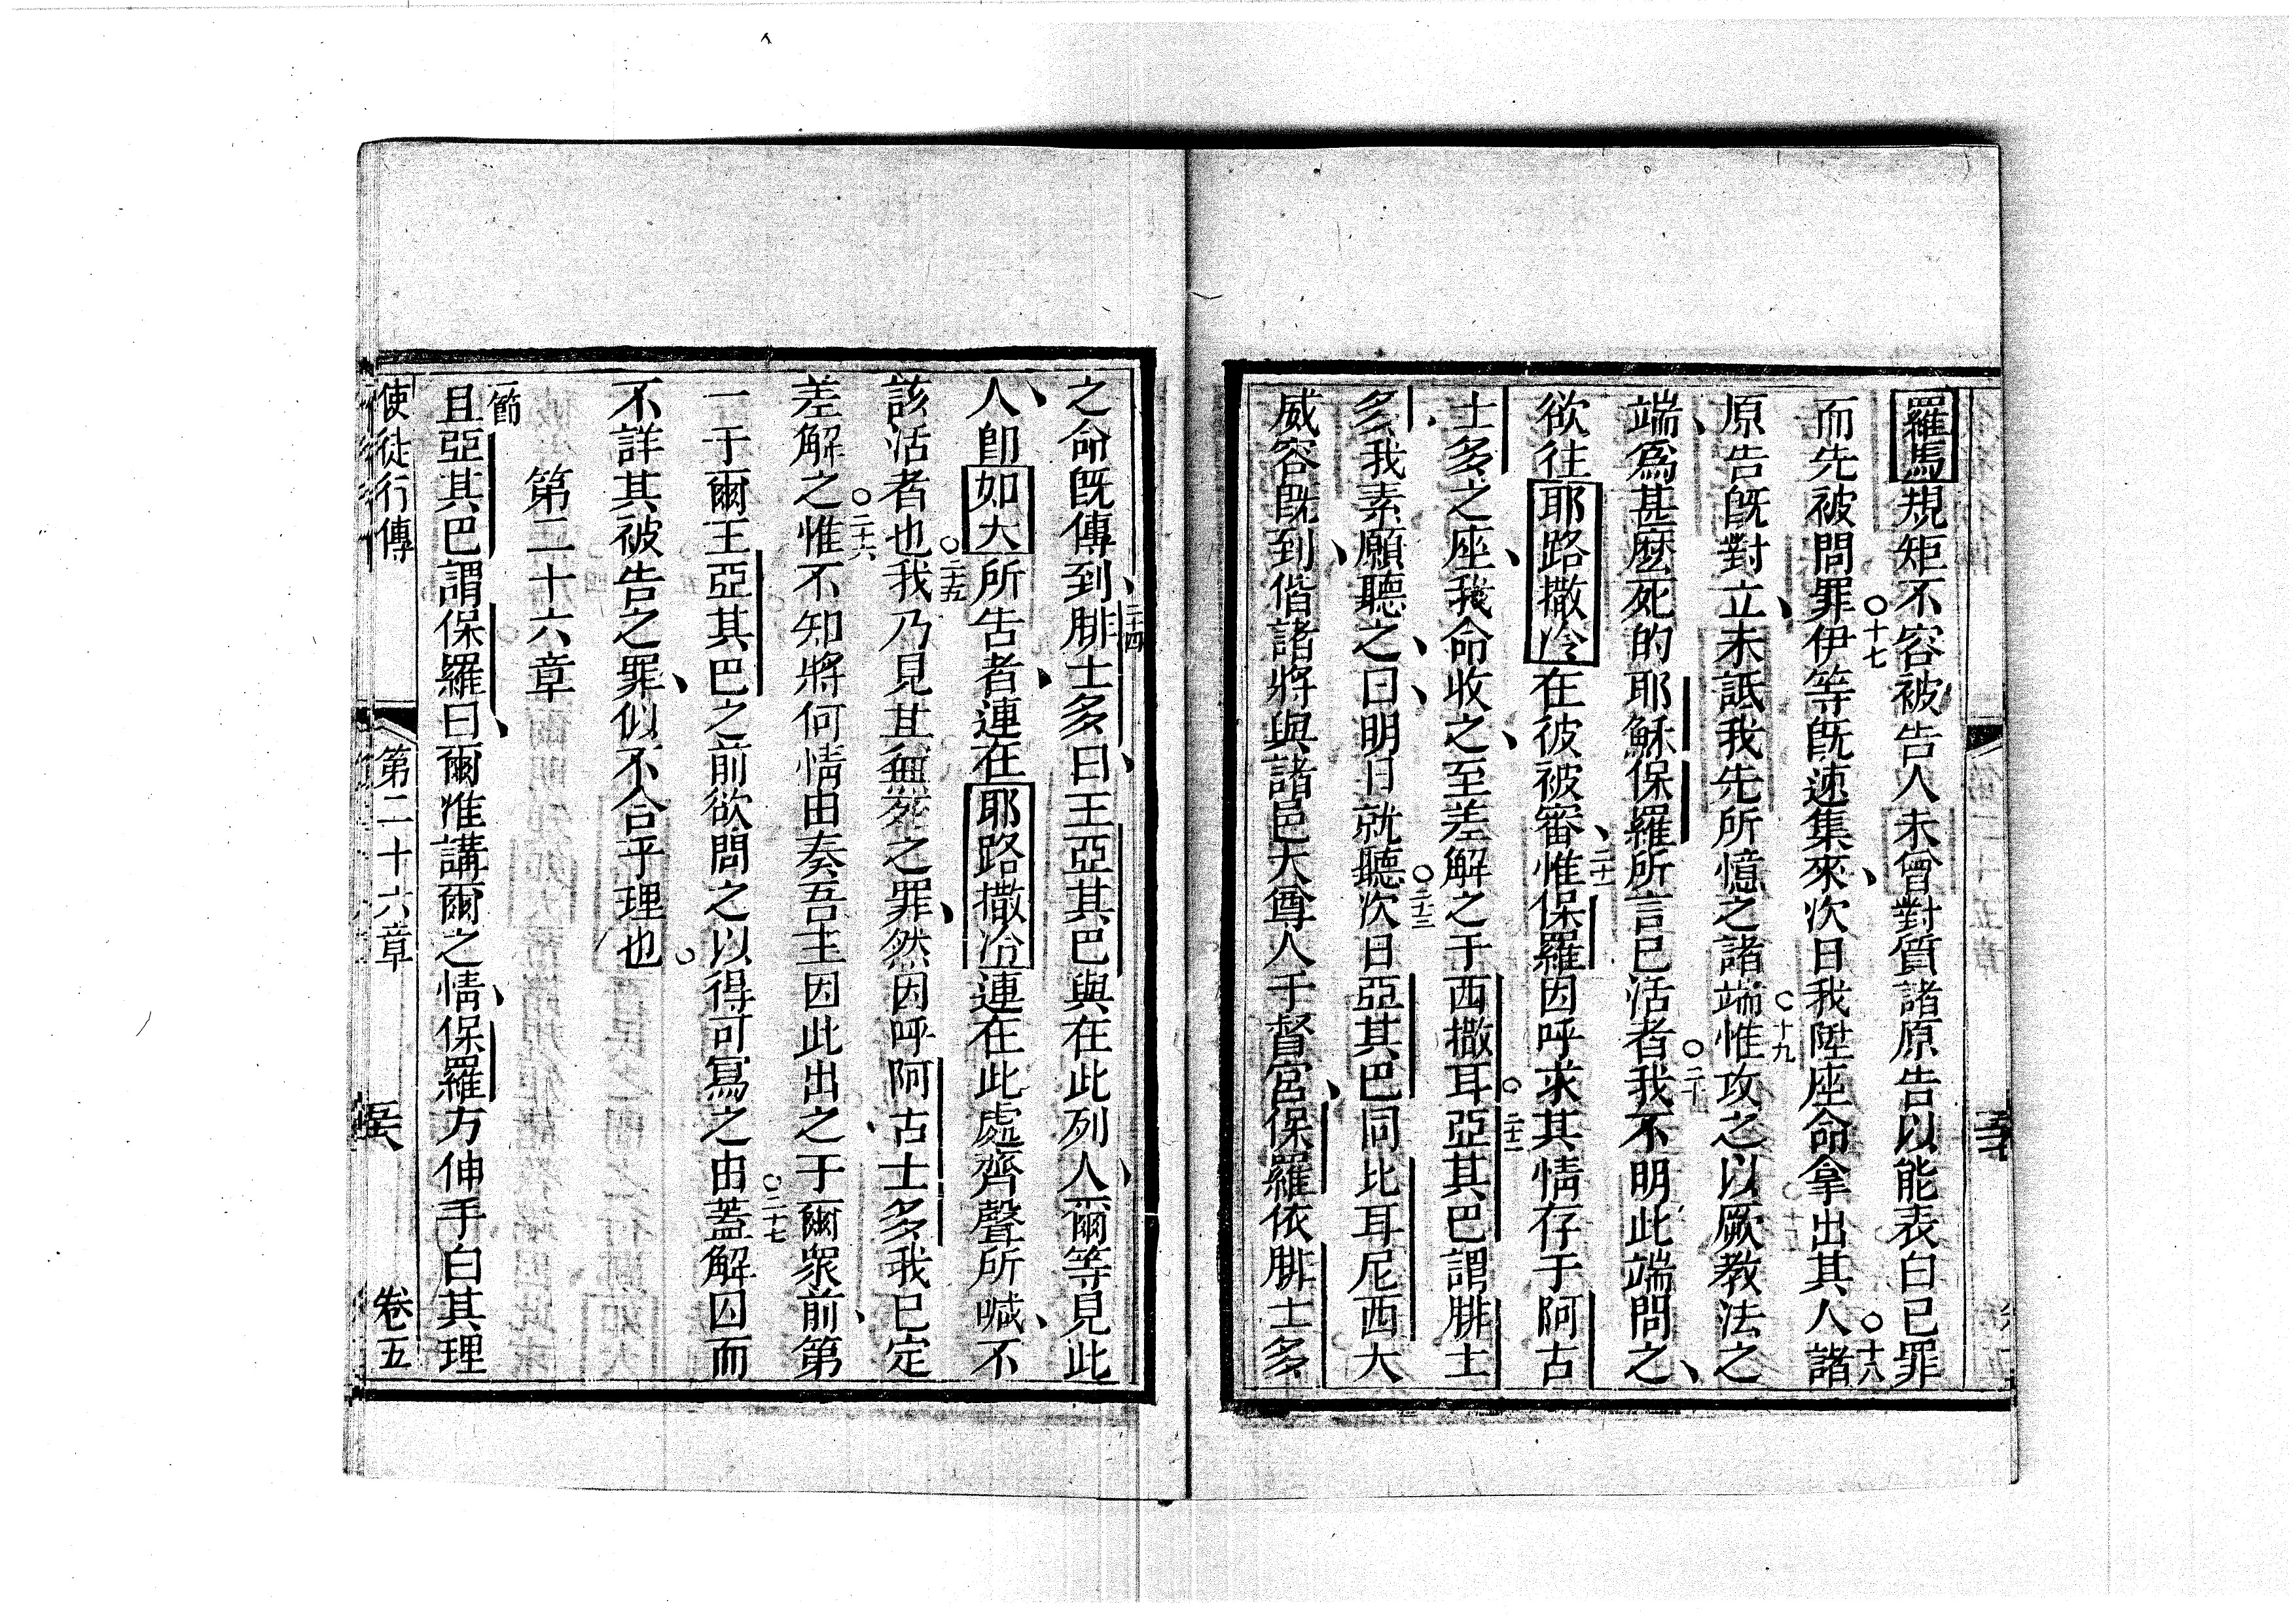 羅馬規矩不容被告人未曾對質諸原告以能表白已罪
而先被問罪○十七伊等旣速集來、次日我陞座命拿出其人○十八諸
原告旣對立、未詆我先所憶之諸端○十九惟攻之以厥教法之
端、爲甚麽死的耶穌保羅所言已活者○二十我不明此端問之、
欲往耶路撒冷在彼被審、二十一惟保羅因呼求其情存于阿古
士多之座、我命收之、至差解之于西撒耳○二十二亞其巴謂腓士
多、我素願聽之、曰、明日就聽○二十三次日亞其巴同比耳尼西大
威容旣到、偕諸將與諸邑大尊人于督宮、保羅依腓士多
之命旣傳到、二十四腓士多曰、王亞其巴與在此列人、爾等見此
人、卽如大所告者、連在耶路撒冷連在此處齊聲所喊、不
該活者也○二十五我乃見其無死之罪、然因呼阿古士多、我已定
差解之○二十六惟不知將何情由奏吾主因此出之于爾衆前、第
一于爾王亞其巴之前欲問之以得可寫之由○二十七蓋解囚而
不詳其被告之罪、似不合乎理也○
第二十六章
一節
且亞其巴謂保羅曰、爾准講爾之情、保羅方伸手白其理
使徒行傳 第二十六章 卷五